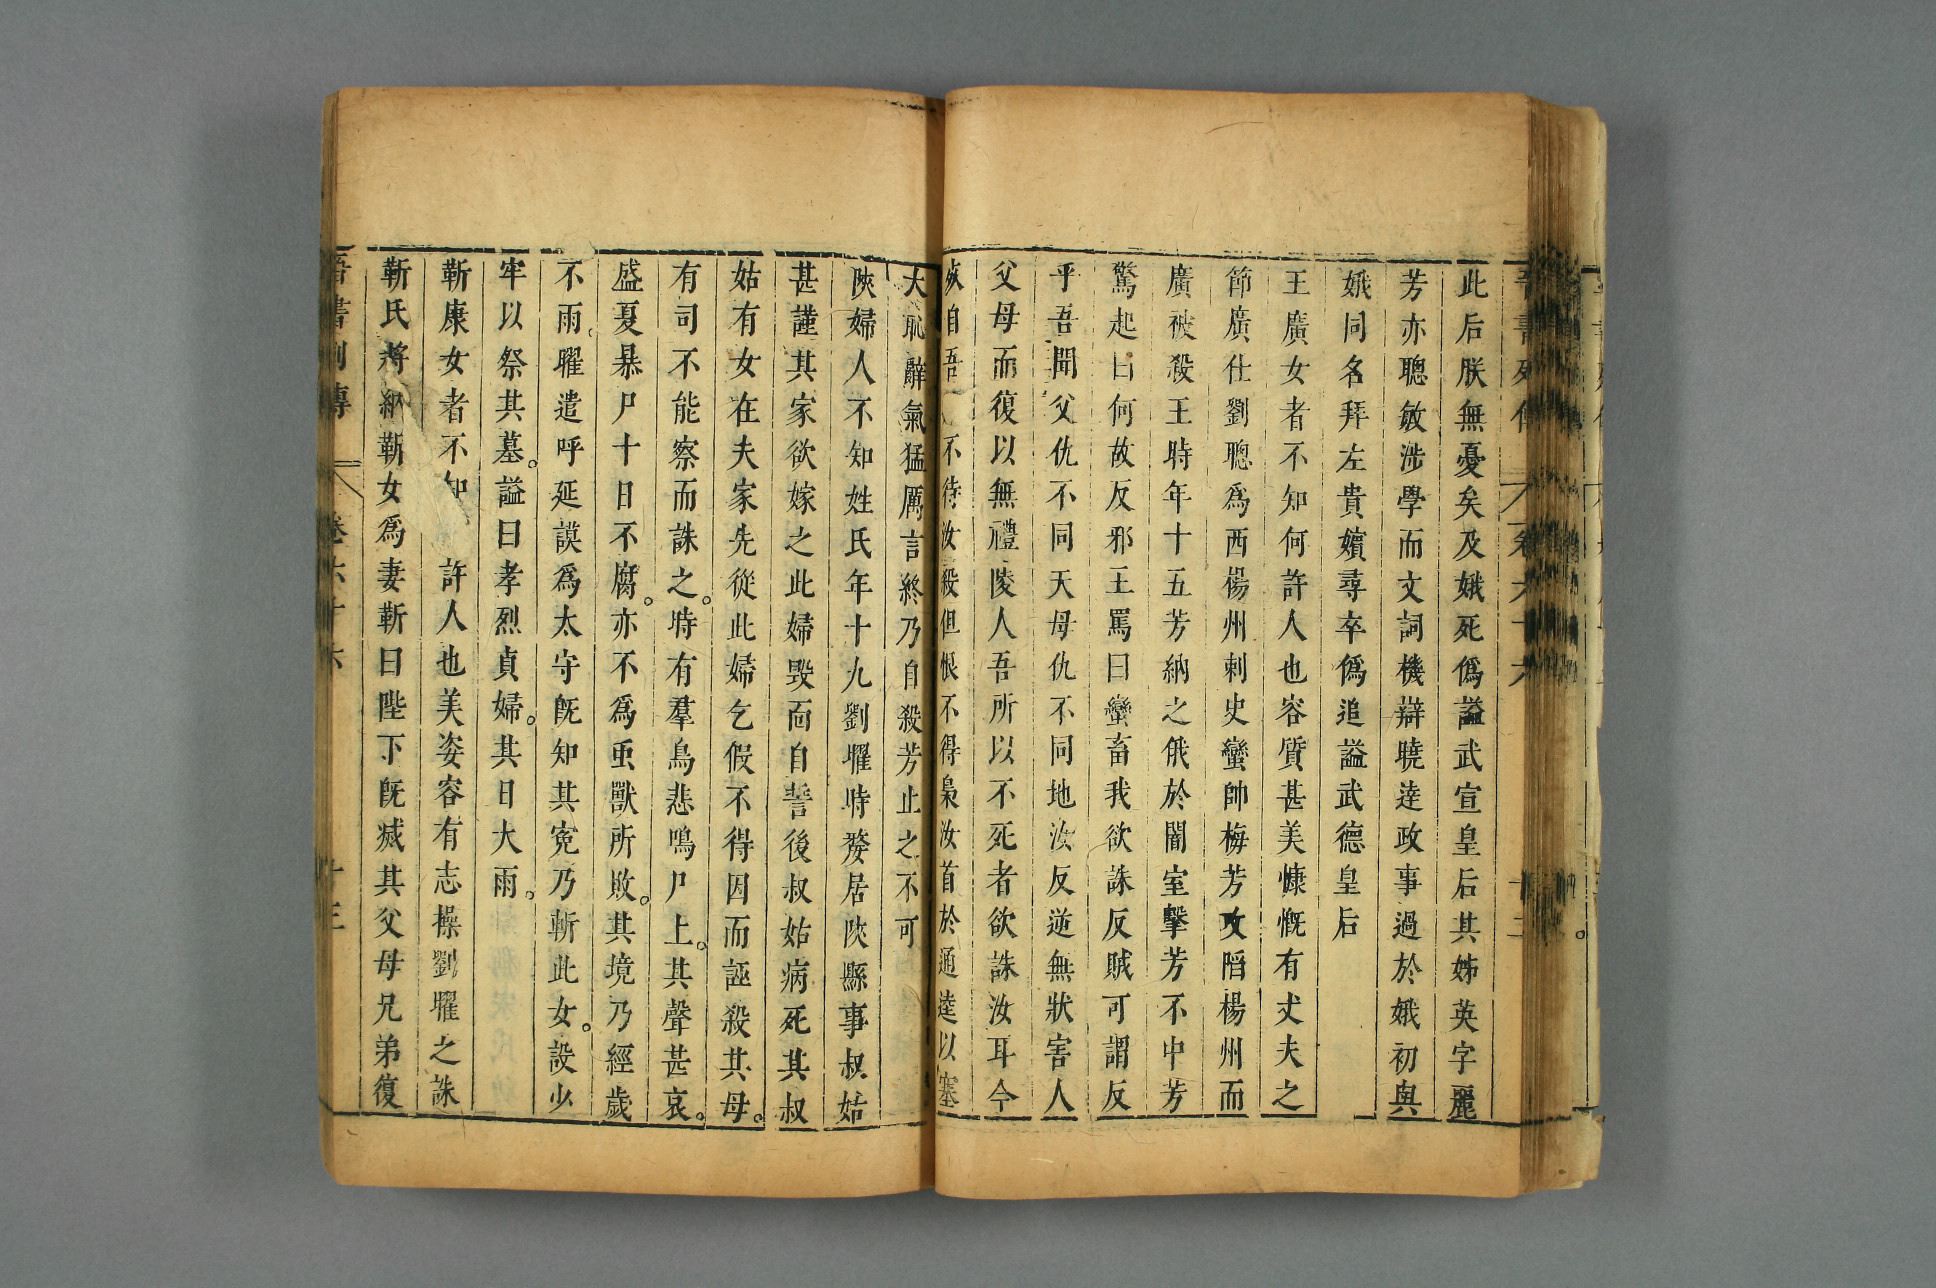 晉書列傳 卷六十六 十二
此后朕無憂矣及娥死僞謚武宣皇后其姊英字麗
芳亦聰敏涉學而文詞機辯曉達政事過於娥初與
娥同名拜左貴嬪尋卒僞追謚武德皇后
王廣女者不知何許人也容質甚美慷慨有丈夫之
節廣仕劉聰爲西楊州刺史蠻帥梅芳攻陷楊州而
廣被殺王時年十五芳納之俄於闇室擊芳不中芳
驚起曰何故反邪王罵曰蠻畜我欲誅反賊可謂反
乎吾聞父仇不同天母仇不同地汝反逆無狀害人
父母而復以無禮陵人吾所以不死者欲誅汝耳今
自吾不待汝殺但恨不得梟汝首於通逵以塞
大恥辭氣猛厲言終乃自殺芳止之不可
陝婦人不知姓氏年十九劉曜時嫠居陝縣事叔姑
甚謹其家欲嫁之此婦毀面自誓後叔姑病死其叔
姑有女在夫家先從此婦乞假不得因而誣殺其母。
有司不能察而誅之。時有羣鳥悲鳴尸上。其聲甚哀。
盛夏暴尸十日不腐。亦不爲虫獸所敗。其境乃經歲
不雨。曜遣呼延謨爲太守旣知其寃乃斬此女。設少
牢以祭其墓。謚曰孝烈貞婦。其日大雨。
靳康女者不知許人也美姿容有志操劉曜之誅
靳氏將納靳女爲妻靳曰陛下旣滅其父母兄弟復
晉書列傳 卷六十六 十三